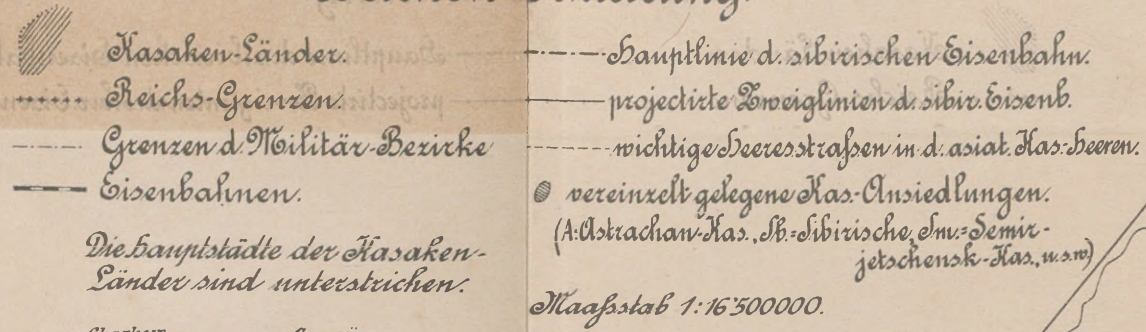 Zeichen-Erklärung.
Kasaken-Länder.
Reichs-Grenzen.
Grenzen d. Militär-Bezirke
Eisenbahnen.
Die Hauptstädte der Kasaken-
Länder sind unterstrichen.
Hauptlinie d. sibirischen Eisenbahn.
projectirte Zweiglinien d. sibir. Eisenb.
wichtige Heeresstraßen in d. asiat. Kas.-Heeren.
vereinzelt gelegene Kas.-Ansiedlungen.
(A.=Astrachan-Kas., Sb.=Sibirische, Sm.=Semir-
jetschensk-Kas., u.s.w.)
Maaßstab 1:16'500000.